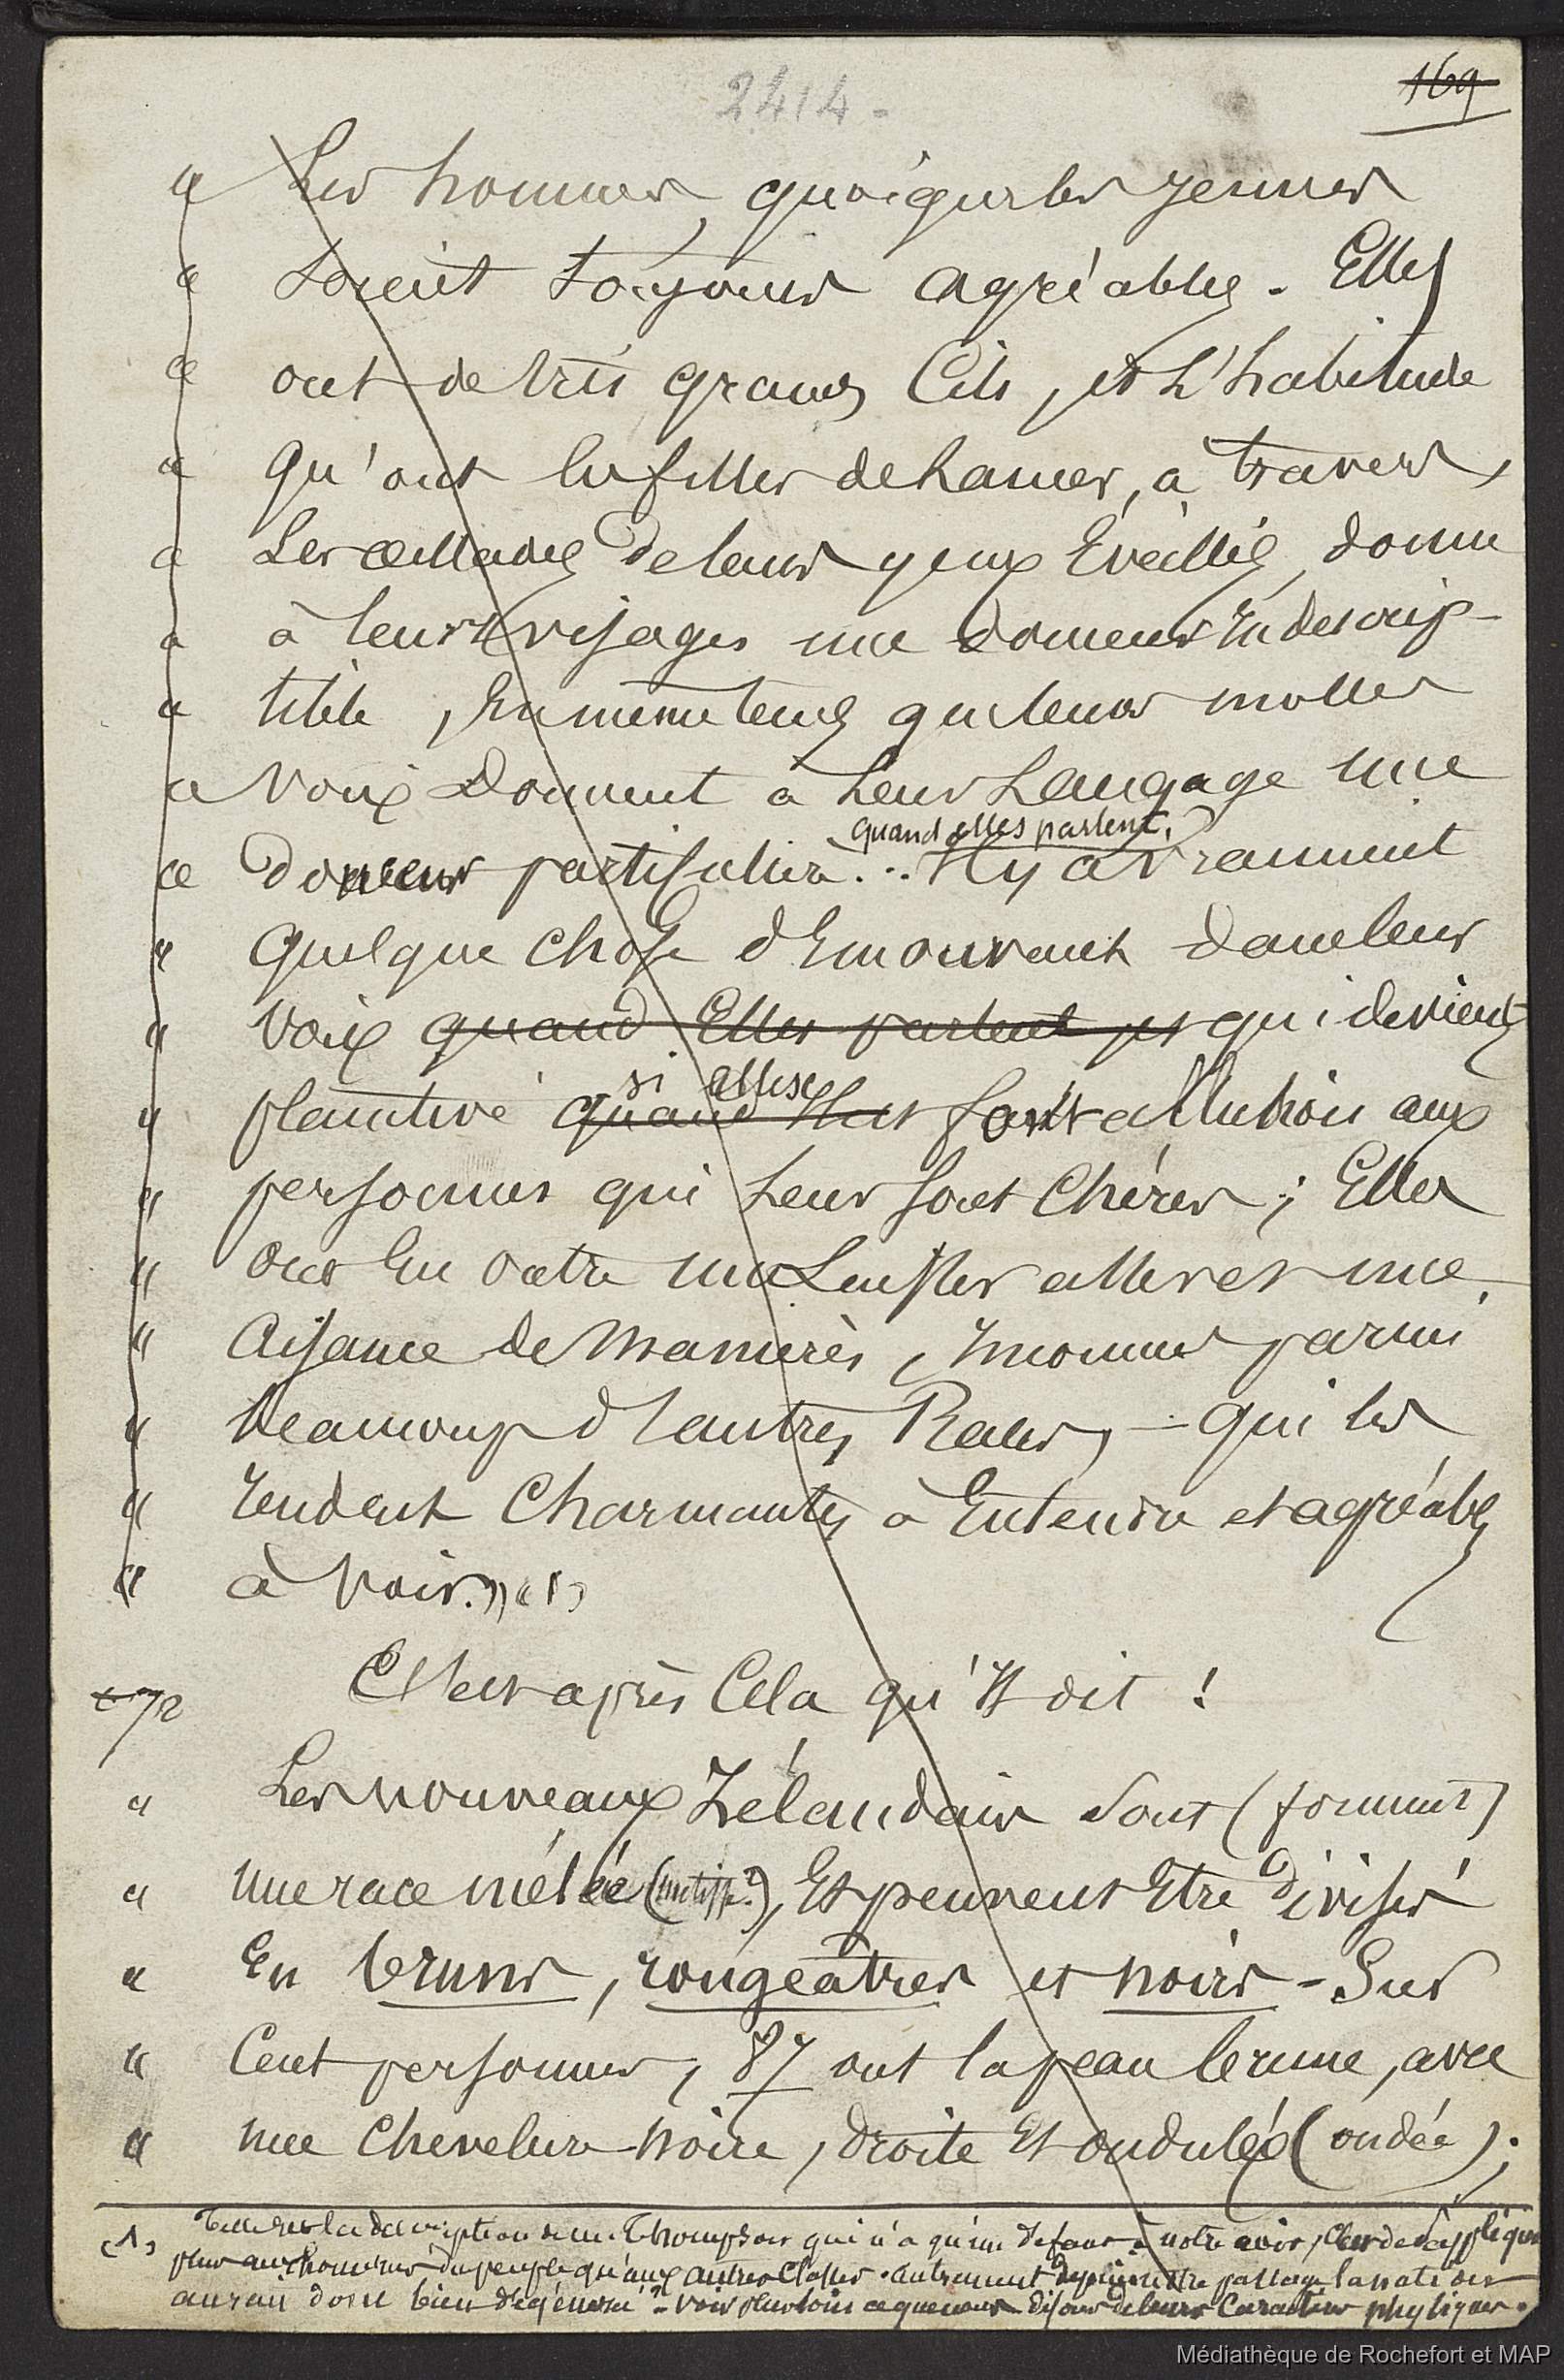 2414.
169
« Les hommes, quoique les jeunes
« soient toujours agréables. Elles
« ont de très grands Cils, et l'habitude
« qu'ont les filles de lancer, à travers,
« Les œillades de leurs yeux Éveillés, donne
« à leurs visages une douceur indescrip-
« tible, En même tems que leurs molles
« voix donnent à Leur Langage une
quand elles parlent,
« douceur particulière... Il y a vraiment
« quelque chose d'Emouvant dans leur
« voix quand Elles parlent et qui devient
si elles
« plaintive quand Elles font allusion aux
« personnes qui Leur sont Chères; Elles
« ont En outre un Leste aller et une
« Aisance de Manières, Inconnue parmi
« beaucoup d'autres Races, - qui les
« rendent Charmantes à Entendre et agréables
« à Voir. » (1)
72 C'est après Cela qu'Il dit !
« Les nouveaux Zélandais sont (forment)
« une race mêlée (métisse ?), Et peuvent Etre divisés
« En bruns, rougeâtres et noirs - Sur
« Cent personnes, 87 ont la peau brune, avec
« une Chevelure noire, droite Et ondulée (ondée);
(1) Telle est la description de M. Thompson qui n'a qu'un défaut à notre avis, C'est de s'appliquer
plus aux hommes du peuple qu'aux autres Classes. Autrement depuis notre passage la nation
aurait donc bien dégénéré ? - voir plus loin ce que nous disons de leurs Caractères physiques.
Médiathèque de Rochefort et MAP